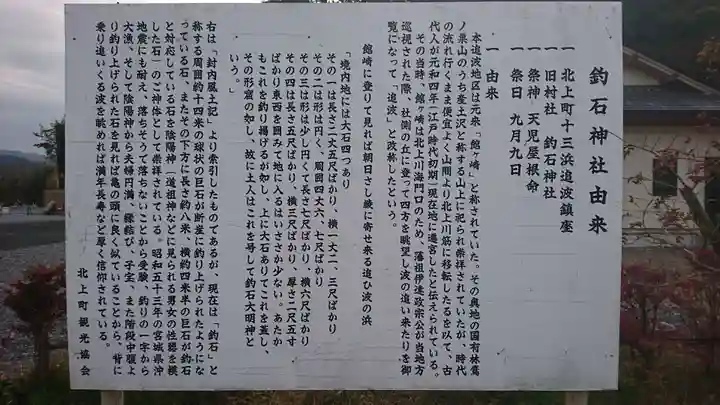 釣石神社由来
一 北上町十三浜追波鎮座
一 旧村社 釣石神社
一 祭神 天児屋根命
一 祭日 九月九日
一 由来
本追波地区は元来「館ヶ崎」と称されていた。その奥地の国有林鶯
ノ巣山のうち産土沢と称する山上に祀られ崇拝されていたが、時代
の流れ行くまま便宜よく山間より北上川筋に移転したるを以て、古
代人が元和四年(江戸時代初期)現在地に遷宮したと伝えられている。
その当時、館ヶ崎は北上川海門口のため、藩祖伊達政宗公が当地方
巡視された際、社側の丘に登って四方を眺望し波の追い来たりを御
覧になって「追波」と改称したという。
館崎に登りて見れば朝日さし綾に寄せ来る追ひ波の浜
「境内地には大石四つあり
その一は長さ二丈五尺ばかり、横一丈二、三尺ばかり
その二は形は円く、周囲四丈六、七尺ばかり
その三は形は少し円くて長さ七尺ばかり、横六尺ばかり
その四は長さ五尺ばかり、横三尺ばかり、厚さ二尺五寸
ばかり東西を囲みて地に入るはいささか少ない。あたか
もこれを釣り揚げるが如し、上に大石ありてこれを蓋し、
その形窟の如し、故に土人はこれを号して釣石大明神と
いう。」
右は「封内風土記」より索引したものであるが、現在は「釣石」と
称する周囲約十四米の球状の巨石が断崖に釣り上げられたようにな
っている石、またその下方に長さ約八米、横約四米半の巨石が釣石
と対応している石を陰陽神(道祖神などに見られる男女の性器を模
した石)のご神体として崇拝されている。昭和五十三年の宮城県沖
地震にも耐え、落ちそうで落ちないことから受験、釣りの一字から
大漁、そして陰陽神から夫婦円満、縁結び、子宝、また階段中腹よ
り釣り上げられた石を見れば亀の頭に良く似ていることから、背に
乗り追いくる波を眺めれば満年長寿など厚く信仰されている。
北上町観光協会